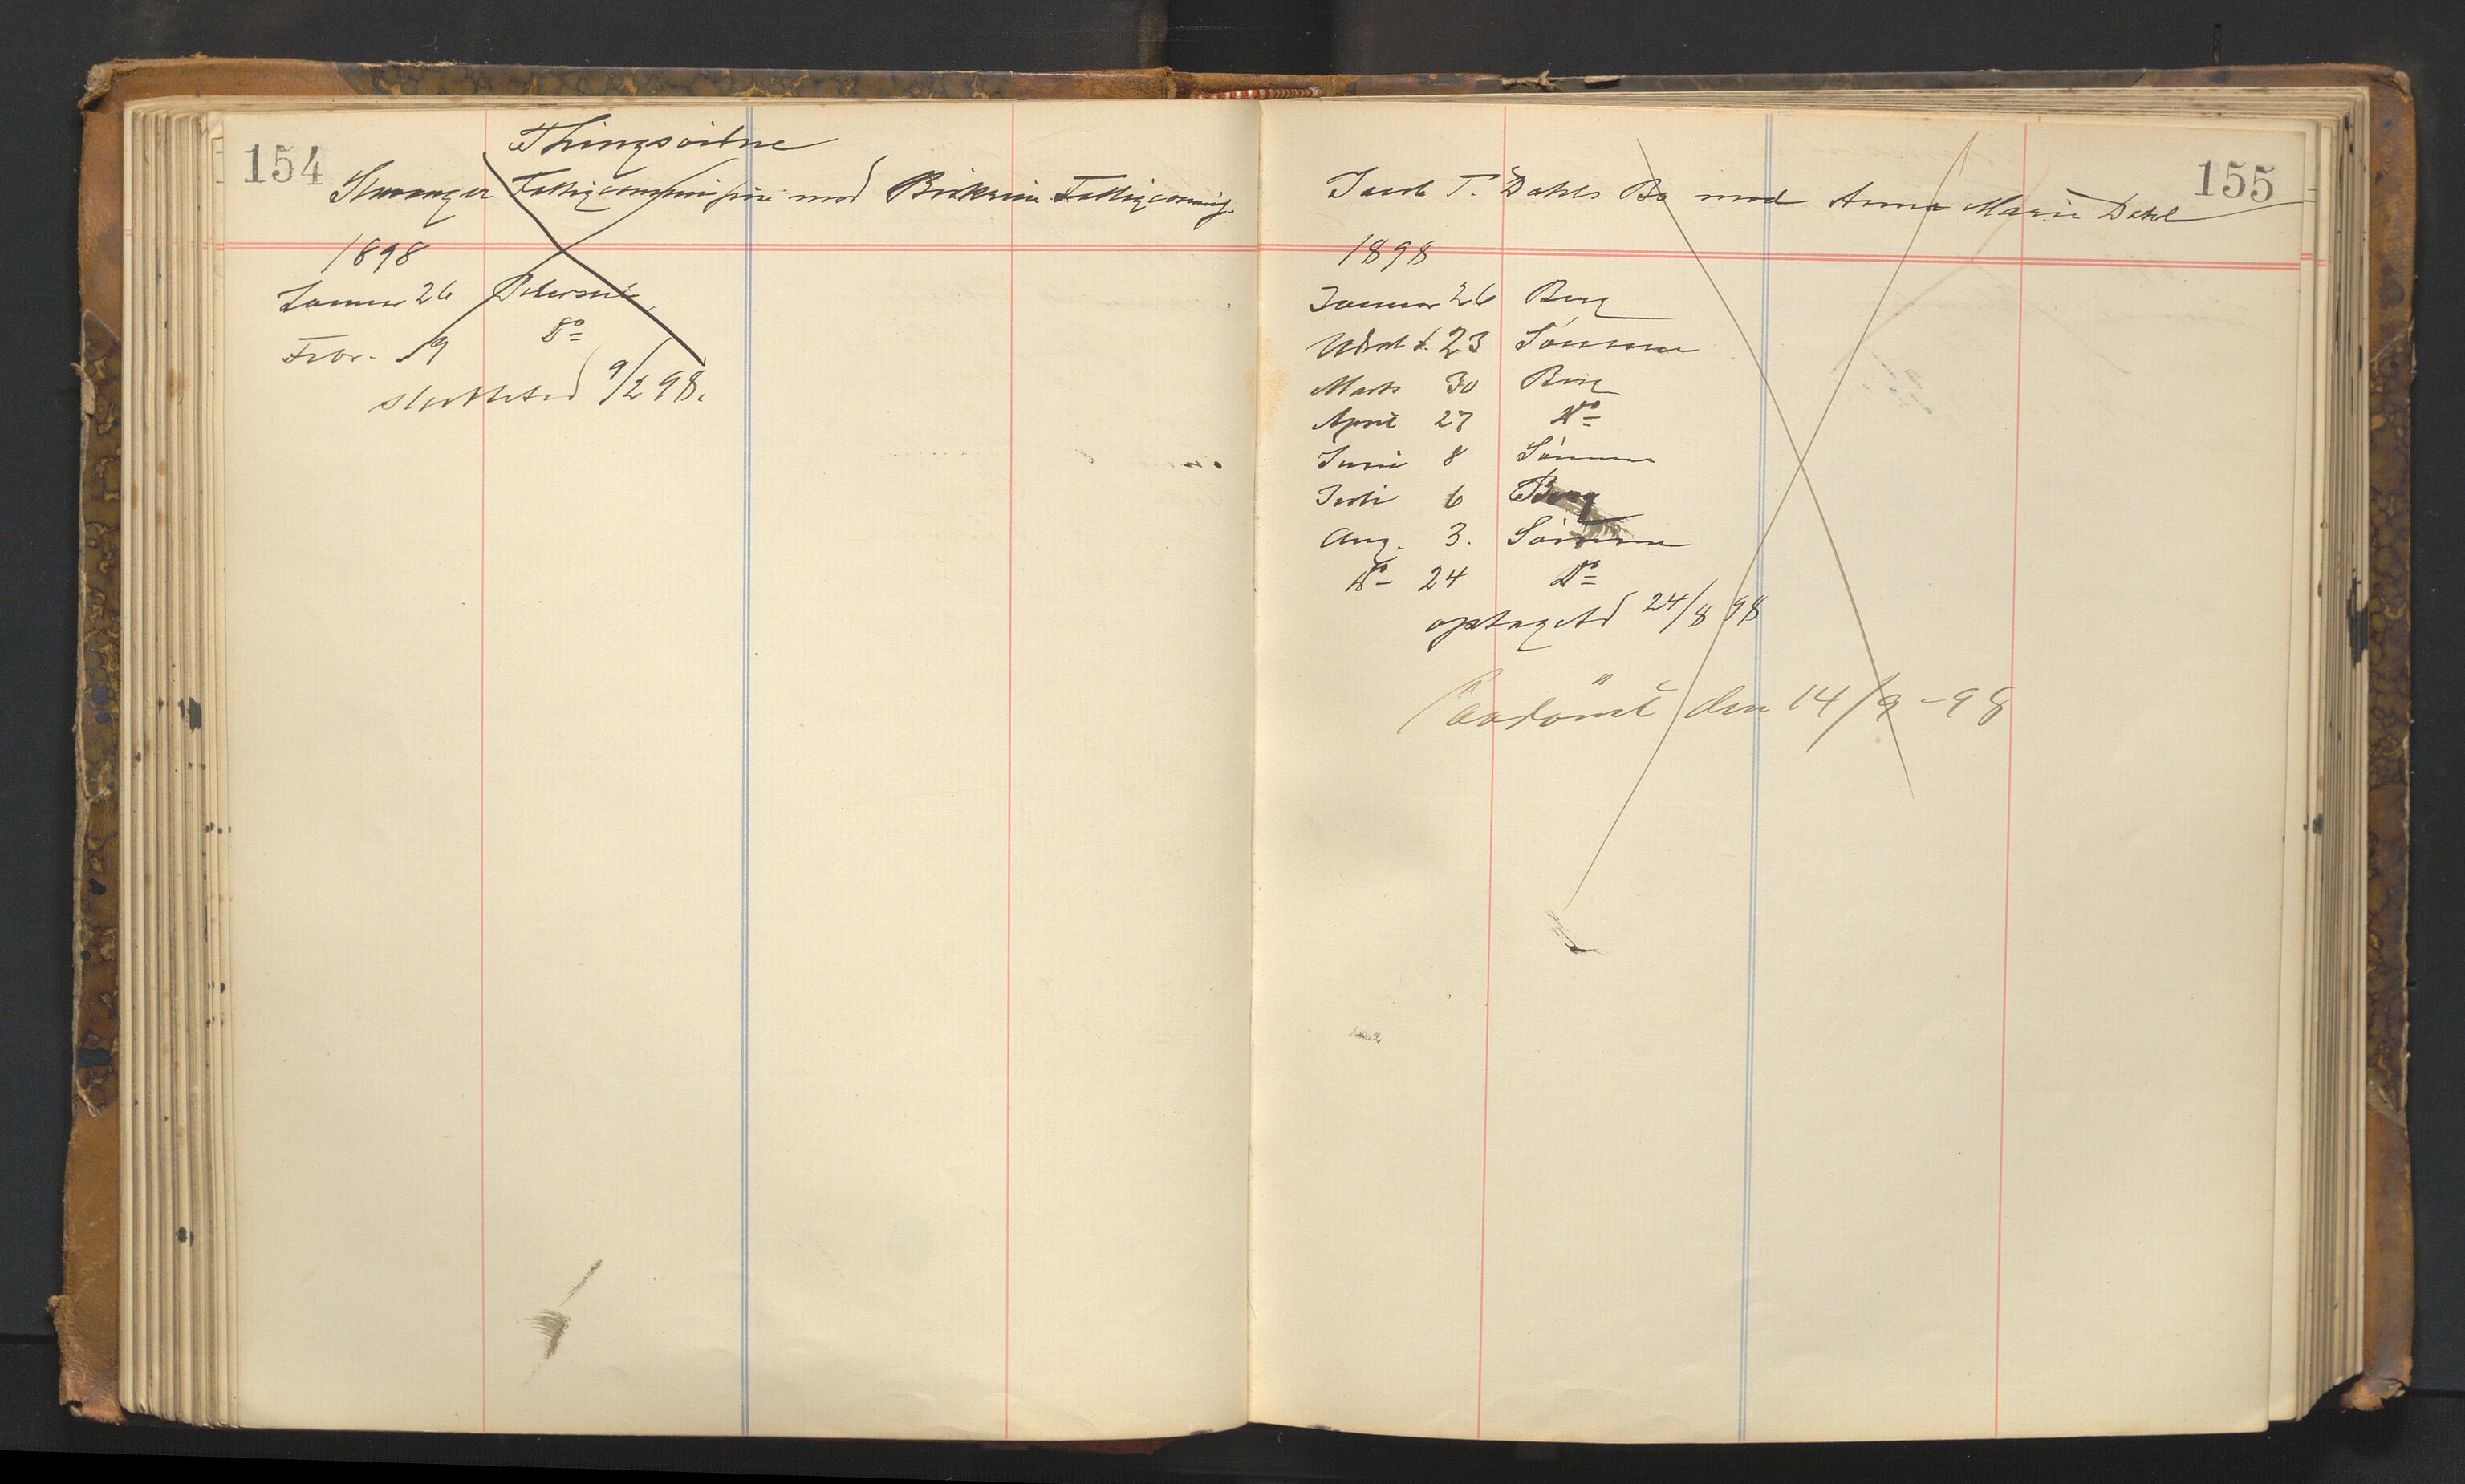 154
Thingsvitne
Stavanger Fattigcommission mod Birkrem Fattigcommis.
1898
Januar 26 Petersen,
Febr. 9 Do
sluttet 9/2 98.
155
Jacob T. Dahls Bo mod Anna Marie Dahl
1898
Januar 26 Berg
Udsat t. 23 Sømme
Marts 30 Berg
April 27 Do
Juni 8 Sømme
Juli 6 Berg
Aug. 3. Sømme
Do 24 Do
optaget 24/8 98
Paadömt den 14/9-98